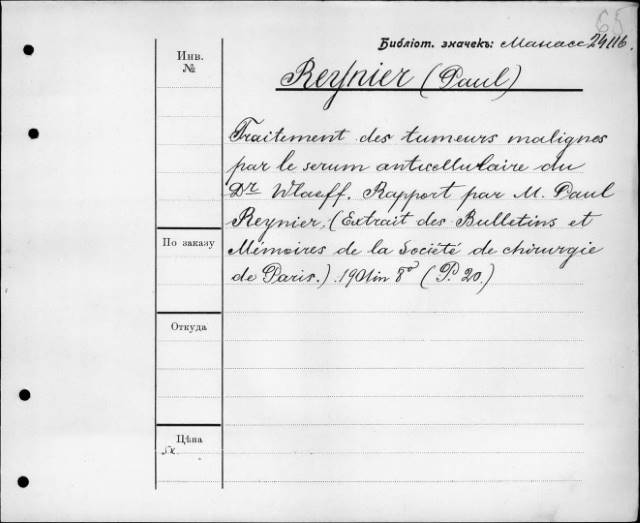 65
Библіот. значекъ: Манасс 24116.
Инв.
№
Reynier (Paul)
Traitement des tumeurs malignes
par le serum anticellulaire du
Dr Wlaeff. Rapport par M. Paul
Reynier, (Extrait des Bulletins et
Mémoires de la Société de chirurgie
de Paris.) 1901 in 8° (P. 20.)
По заказу
Откуда
Цѣна